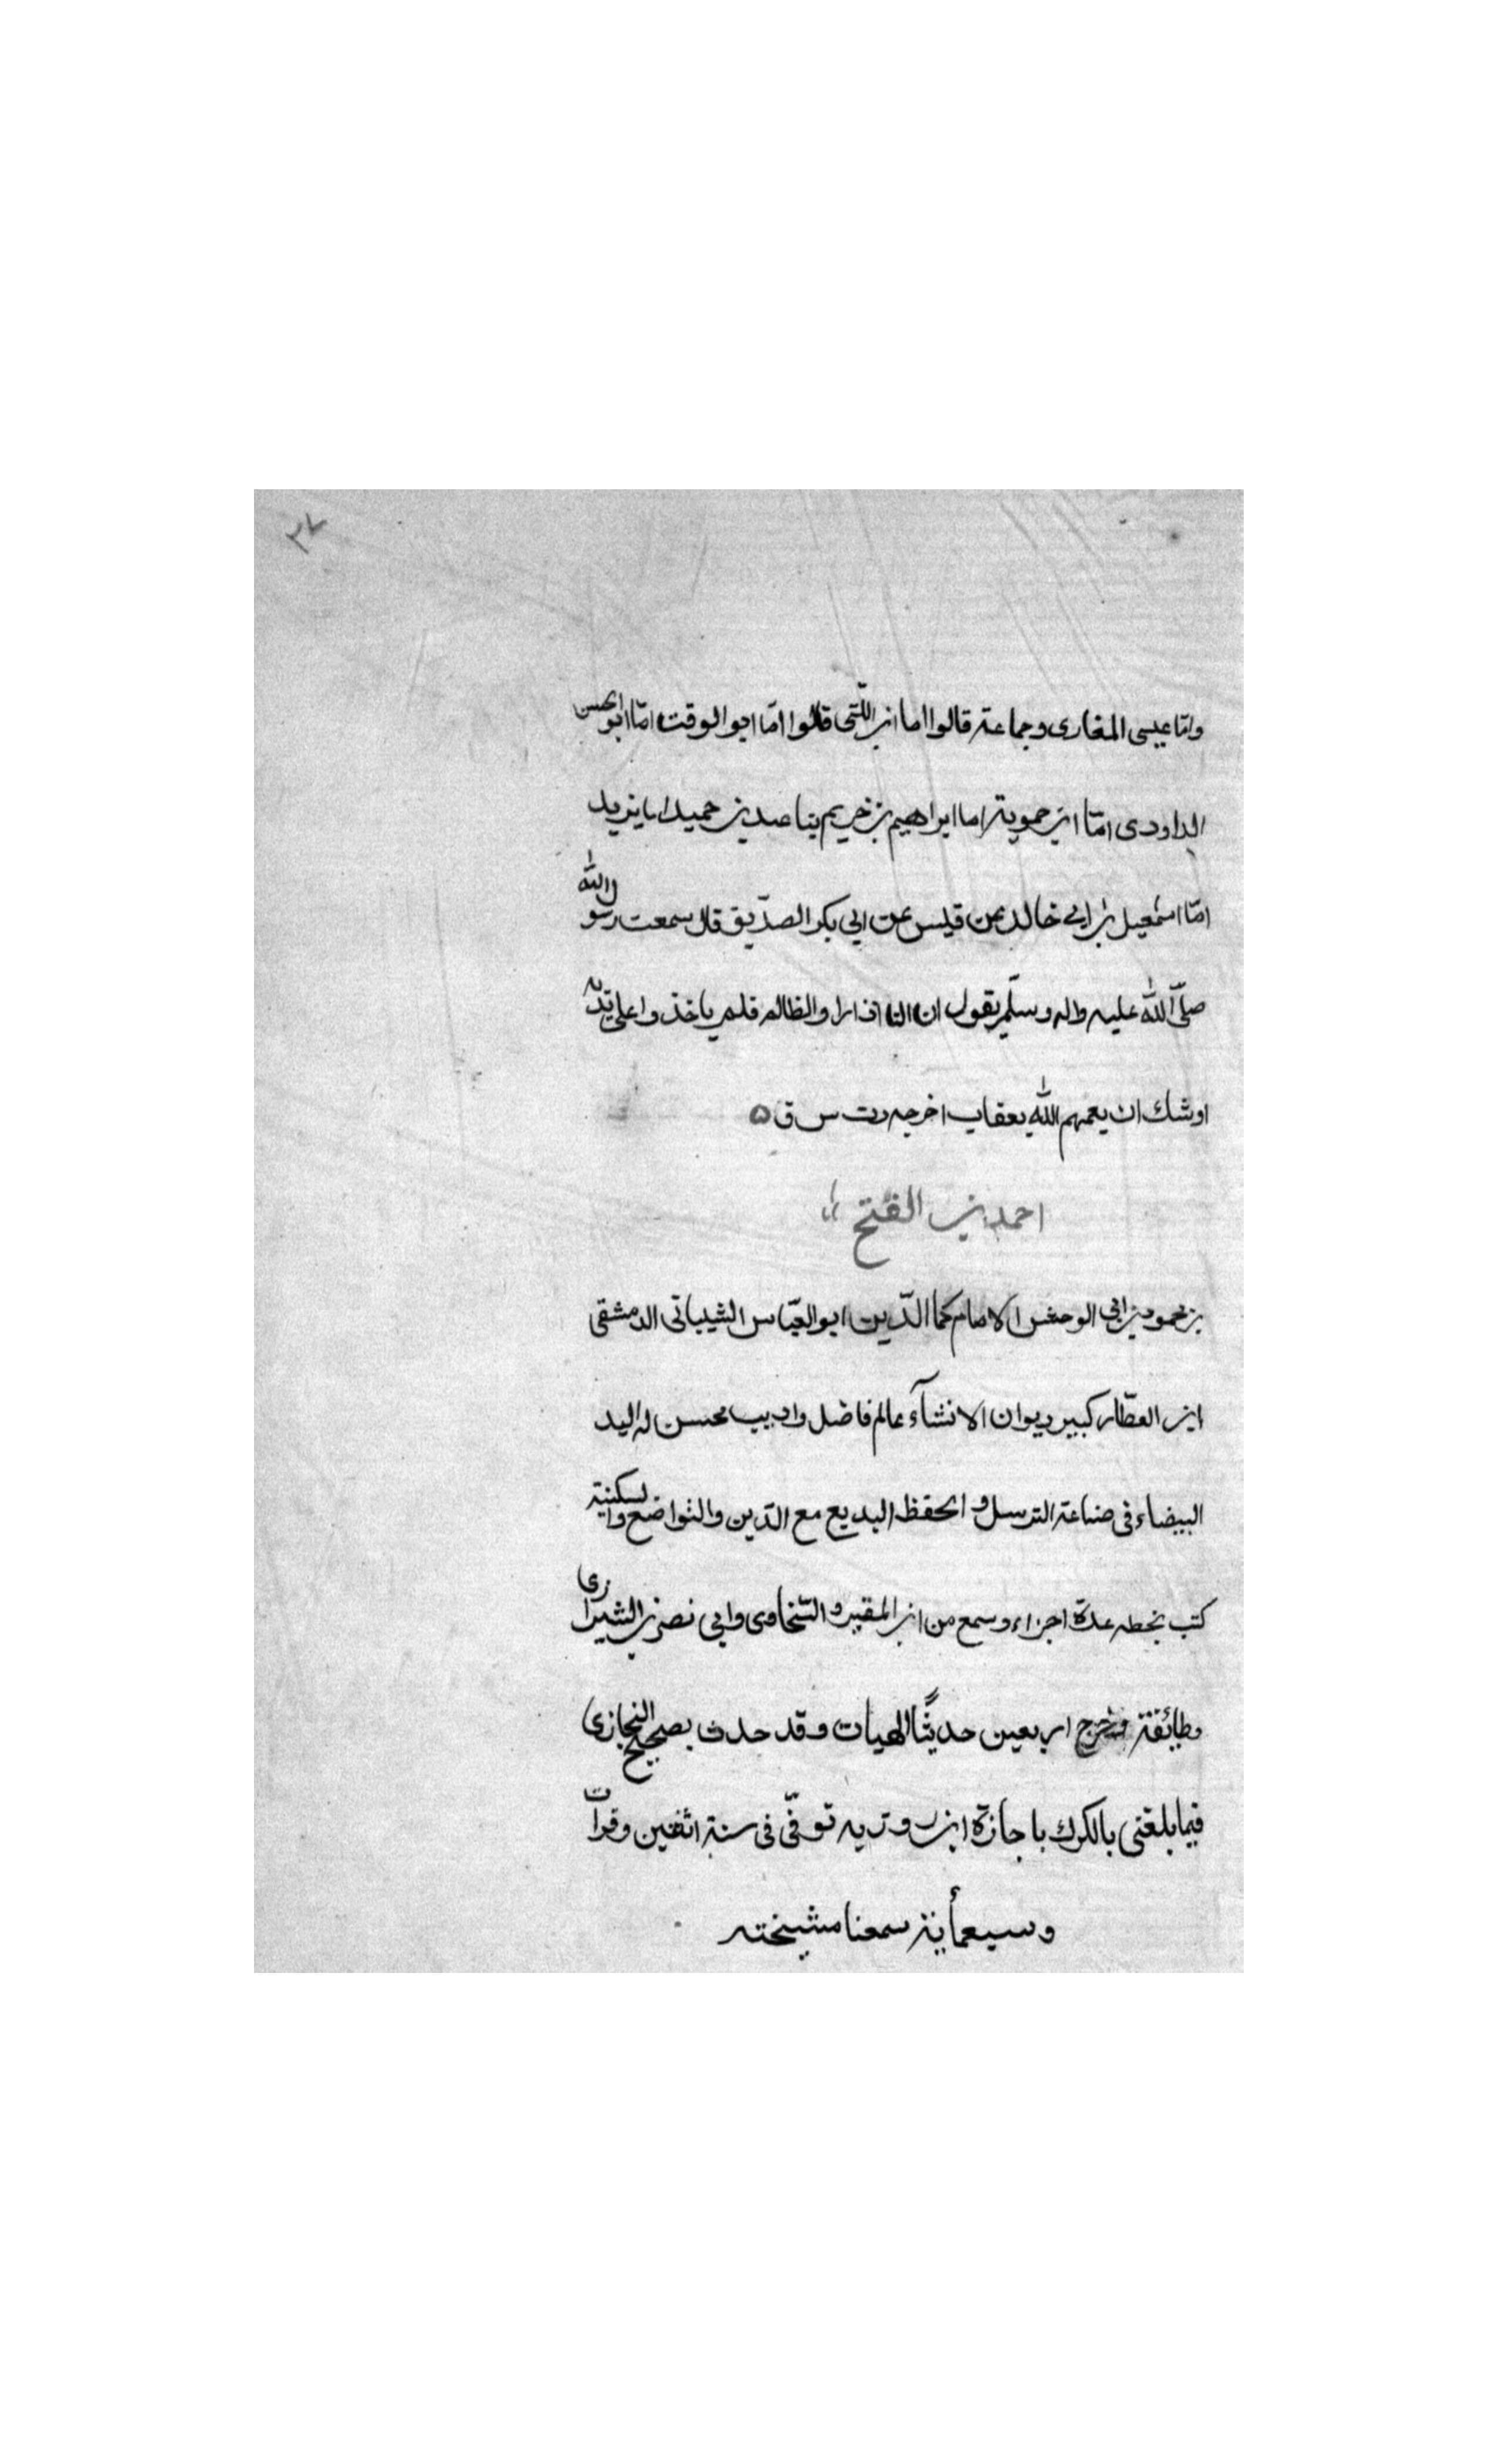 ٣٧
وانا عيسى المغارى وجماعة قالوا اما ابن اللتى قالوا اما ابو الوقت اما ابو الحسن
الداودى امّا ابن حموية اما ابراهيم بن خريم بنا عبد بن حميد اما يزيد
امّا اسمعيل بن ابى خالد عن قيس عن ابى بكر الصدّيق قال سمعت رسول الله
صلّى الله عليه واله وسلّم يقول ان النا اذا راو الظالم فلم ياخذوا على يديه
اوشك ان يعمهم الله بعقاب اخرجه دت س ق ۵
احمد بن ابى الفتح
بن محمود بن ابى الوحش الامام كما الدّين ابو العبّاس الشيبانى الدمشقى
ابن العطّار كبير ديوان الانشآء عالم فاضل واديب محسن له اليد
البيضاء فى صناعة الترسل و الحفظ البديع مع الدّين والتواضع والسكينة
كتب بخطه عدة اجزاء وسمع من ابن المقير و السّخاوى وابى نصر بن الشيرازى
وطائفة وخرج اربعين حديثًا الهيات وقد حدث بصحيح البخارى
فيما بلغنى بالكرك باجازة ابن روزبه توفّى فى سنة اثنين وقرات
وسبعمأية سمعنا مشيخته